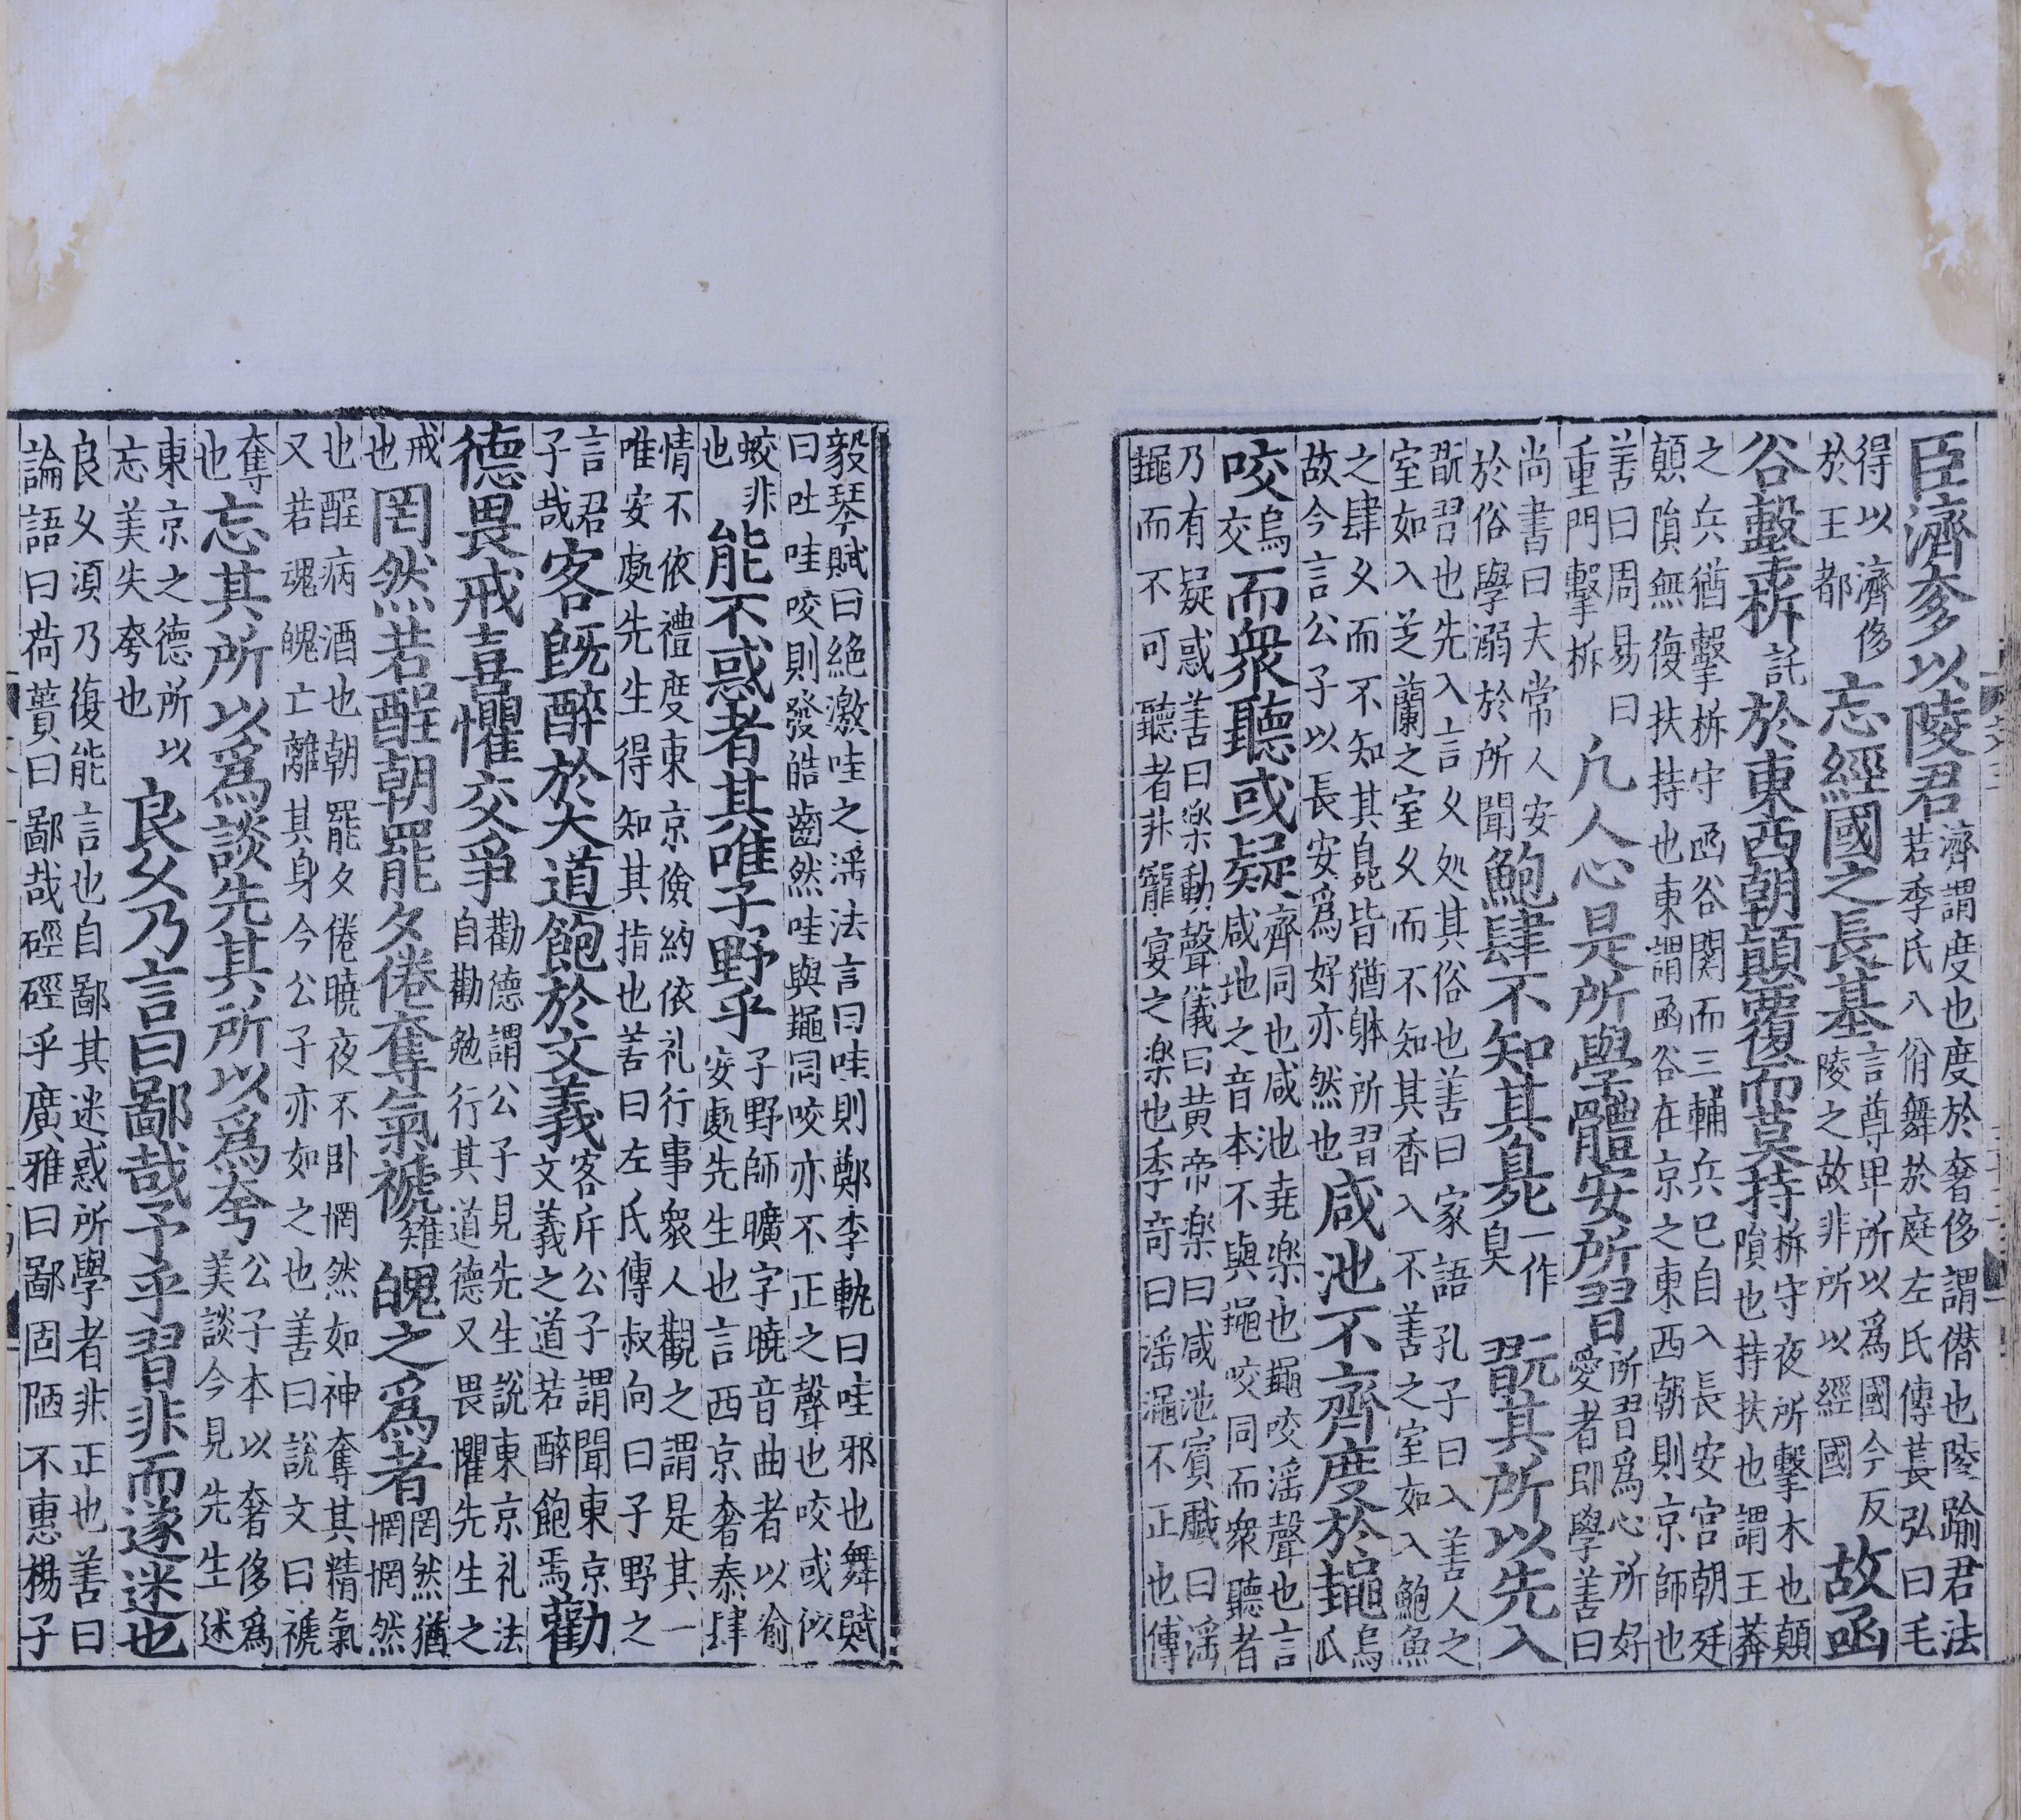 臣濟奓以陵君濟謂度也度於奢侈謂僣也陵踰君法若季氏八佾舞於庭左氏傳萇弘曰毛
得以濟侈於王都忘經國之長基言尊卑所以爲國今反陵之故非所以經國故函
谷擊柝託於東西朝顛覆而莫持柝守夜所擊木也顛隕也持扶也謂王莽
之兵猶擊柝守函谷関而三輔兵已自入長安宫朝廷顛隕無復扶持也東謂函谷在京之東西朝則京師也
善曰周易曰重門擊柝凡人心是所學體安所習所習爲心所好愛者即學善曰
尚書曰夫常人安於俗學溺於所聞鮑肆不知其臰一作臭翫其所以先入
翫習也先入言久处其俗也善曰家語孔子曰入善人之室如入芝蘭之室久而不知其香入不善之室如入鮑魚
之肆久而不知其臰皆猶躰所習故今言公子以長安爲好亦然也咸池不齊度於䵷烏瓜
咬烏交而衆聽或疑齊同也咸池堯楽也䵷咬滛聲也言咸池之音本不與䵷咬同而衆聽者
乃有疑惑善曰楽動聲儀曰黄帝楽曰咸池賓戲曰滛䵷而不可聽者非寵宴之楽也季竒曰滛䵷不正也傅
毅琴賦曰絶激哇之滛法言曰哇則鄭李軌曰哇邪也舞賦曰吐哇咬則發皓齒然哇與䵷同咬亦不正之聲也咬或作
蛟非也能不惑者其唯子野乎子野師曠字曉音曲者以喻安處先生也言西京奢泰肆
情不依禮度東京儉約依礼行事衆人觀之謂是其一唯安處先生得知其指也善曰左氏傳叔向曰子野之
言君子哉客既醉於大道飽於文義客斥公子謂聞東京文義之道若醉飽焉勸
德畏戒喜懼交爭勸德謂公子見先生說東京礼法自勸勉行其道德又畏懼先生之
戒也罔然若酲朝罷夕倦奪氣褫雉魄之爲者罔然猶惘惘然
也酲病酒也朝罷夕倦曉夜不卧惘然如神奪其精氣又若魂魄亡離其身今公子亦如之也善曰說文曰褫
奪也忘其所以爲談先其所以爲夸公子本以奢侈爲美談今見先生述
東京之德所以忘美失夸也良久乃言曰鄙哉予乎習非而遂迷也
良久湏乃復能言也自鄙其迷惑所學者非正也善曰論語曰荷蕢曰鄙哉硜硜乎廣雅曰鄙固陋不惠楊子